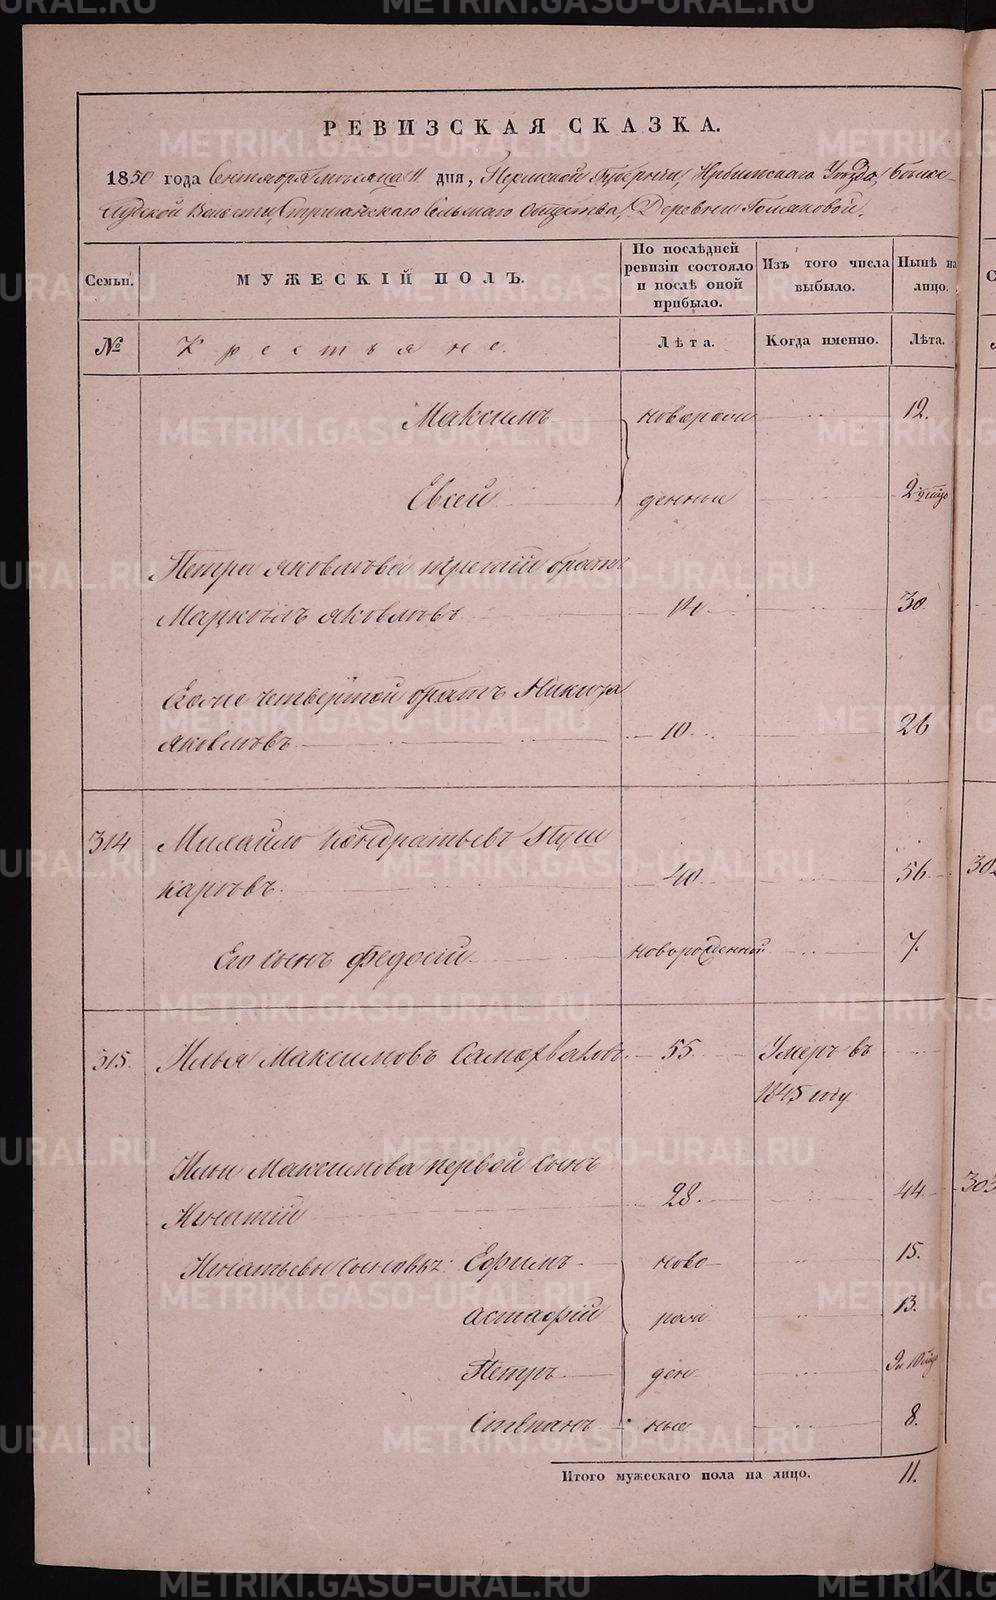 РЕВИЗСКАЯ СКАЗКА.
1850 года Сентября месяца 11 дня, Пермской Губернии, Ирбитского Уѣзда,
Волости, Сельскаго Общества, Деревни
Семьи.
МУЖЕСКІЙ ПОЛЪ.
По послѣдней ревизіи состояло и послѣ оной прибыло.
Изъ того числа выбыло.
Нынѣ на лицо.
№
Крестьяне.
Лѣта.
Когда именно.
Лѣта.
Максимъ новорож 12.
Евсей денные 2
Петра Яковлева третій братъ
Яковлевъ 14 30
четвертой братъ Никита
Яковлевъ 10 26
314 Михайло Кондратьевъ Пуш
каревъ 40 56
Его сынъ Федосій новорожденной 7.
315. Илья Максимовъ Самохваловъ 55 Умеръ въ
1845 году
Ильи Максимова первой сынъ
Игнатій 28. 44
Игнатьевы сыновья: Ефимъ ново 15.
Астафій рож 13.
Петръ ден
Степанъ ные 8.
Итого мужескаго пола на лицо. 11.
302
303
METRIKI.GASO-URAL.RU